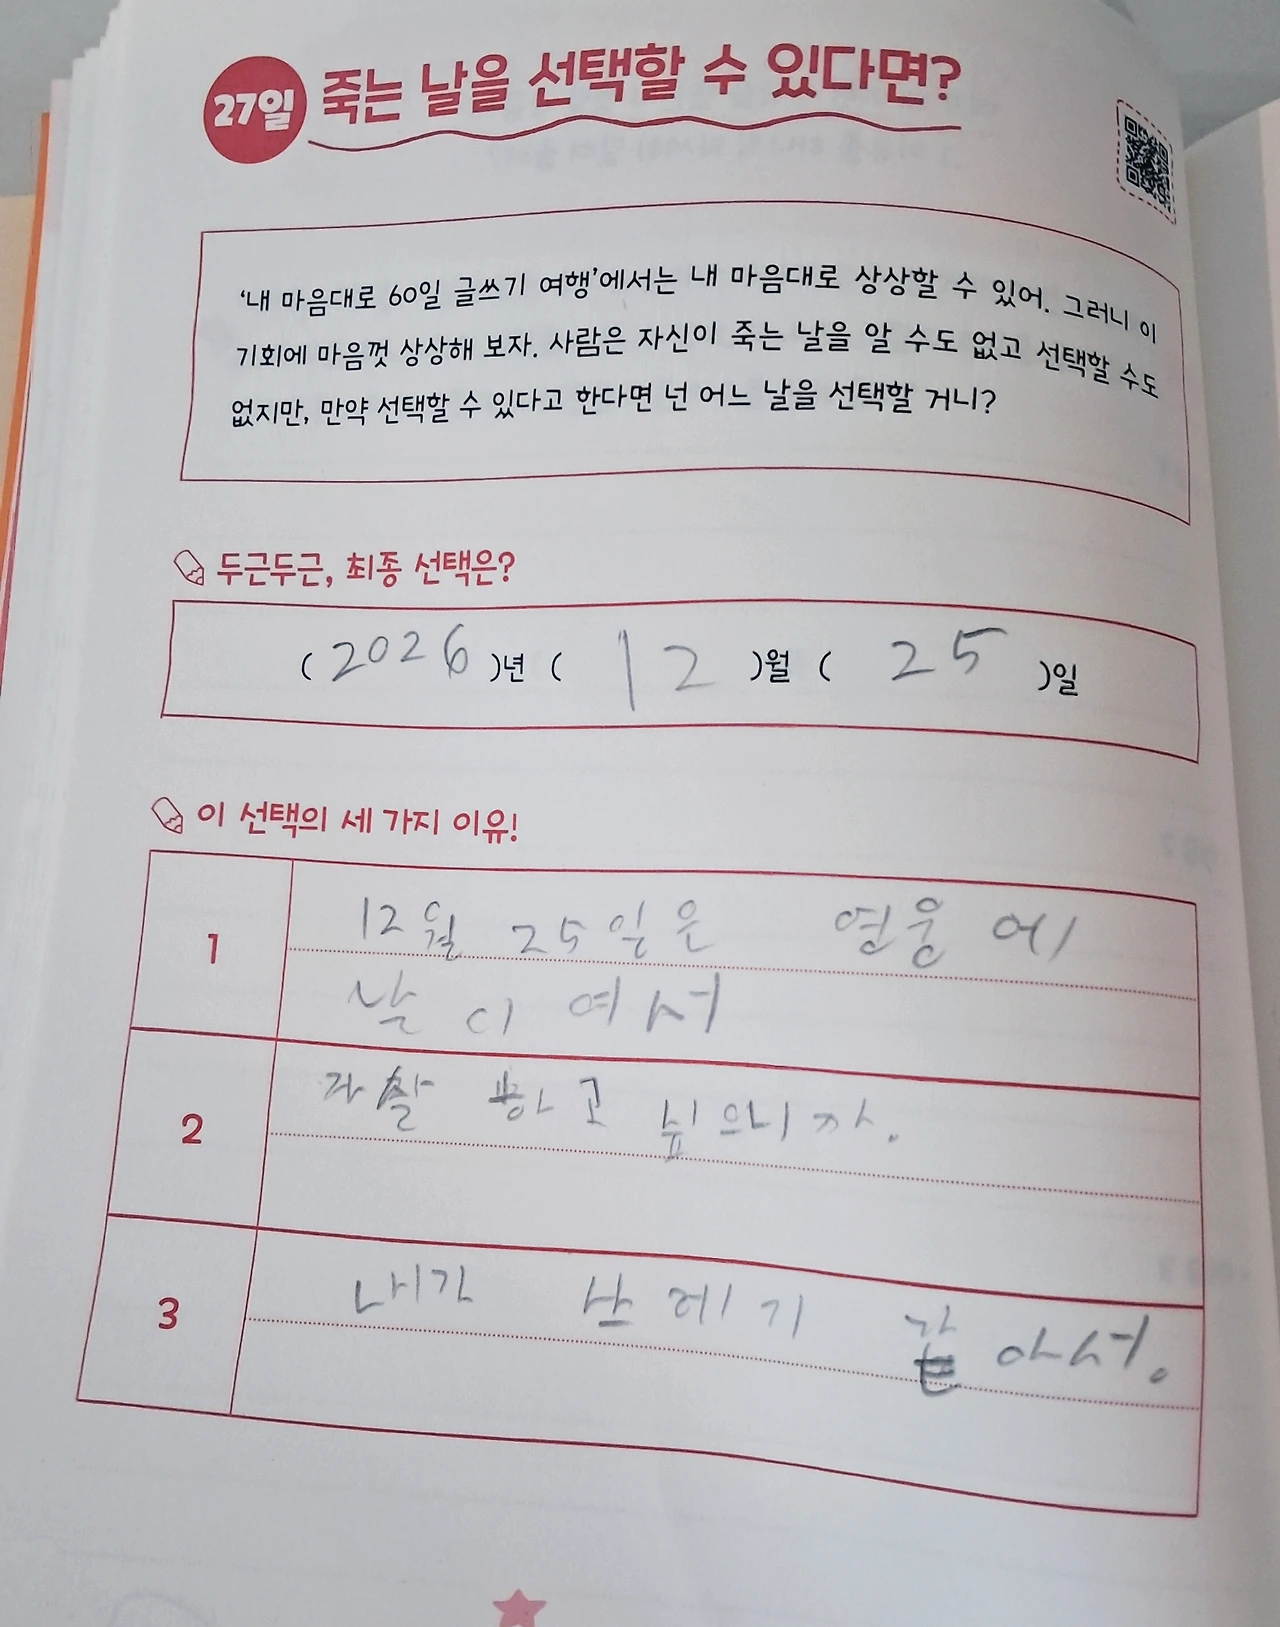 27일 죽는 날을 선택할 수 있다면?
‘내 마음대로 60일 글쓰기 여행’에서는 내 마음대로 상상할 수 있어. 그러니 이
기회에 마음껏 상상해 보자. 사람은 자신이 죽는 날을 알 수도 없고 선택할 수도
없지만, 만약 선택할 수 있다고 한다면 넌 어느 날을 선택할 거니?
두근두근, 최종 선택은?
(2026)년 (12)월 (25)일
이 선택의 세 가지 이유!
1 12월 25일은 영웅에
날이여서
2 자살하고 싶으니까.
3 내가 쓰레기
같아서.